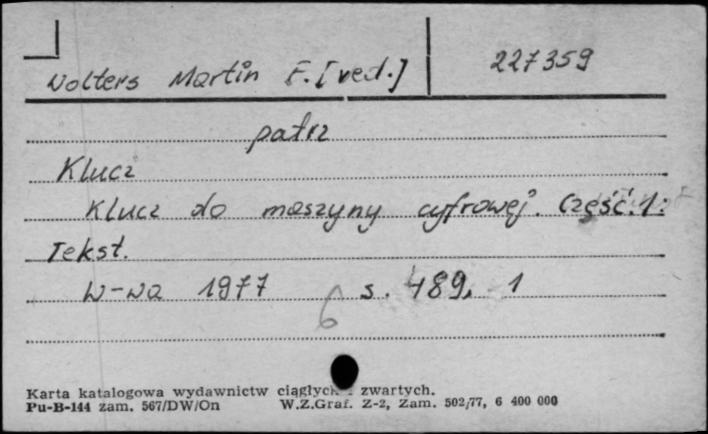 Wolters Martin F. [red.] 227359
patrz
Klucz
Klucz do maszyny cyfrowej. Część. 1:
Tekst.
W-wa 1977 s. 489, 1
6
Karta katalogowa wydawnictw ciągłych i zwartych.
Pu-B-144 zam. 567/DW/On W.Z.Graf. Z-2, Zam. 502/77, 6 400 000